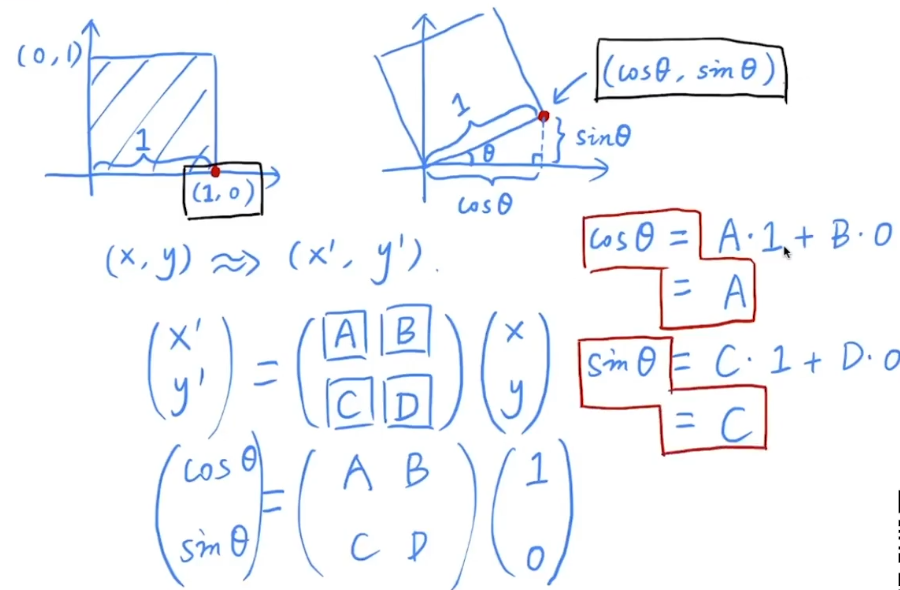 (0, 1)
1
(1, 0)
(cosθ, sinθ)
1
θ
sinθ
cosθ
(x, y) ⇝ (x', y').
(x' y') = (A B C D) (x y)
(cosθ sinθ) = (A B C D) (1 0)
cosθ = A·1 + B·0
= A
sinθ = C·1 + D·0
= C